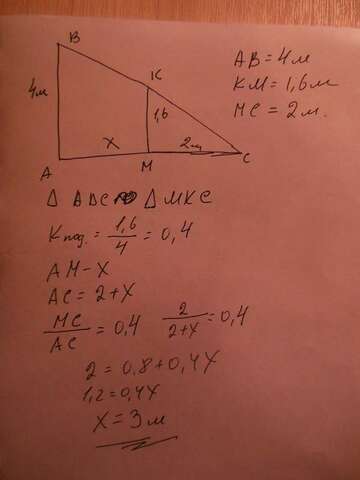 B
K
4м
1,6
X
2м
A
M
C
AB=4м
KM=1,6м
MC=2м.
Δ ABC ∾ Δ MKC
Kпод.=1,6/4=0,4
AM-X
AC=2+X
MC/AC=0,4 2/2+X=0,4
2=0,8+0,4X
1,2=0,4X
X=3м